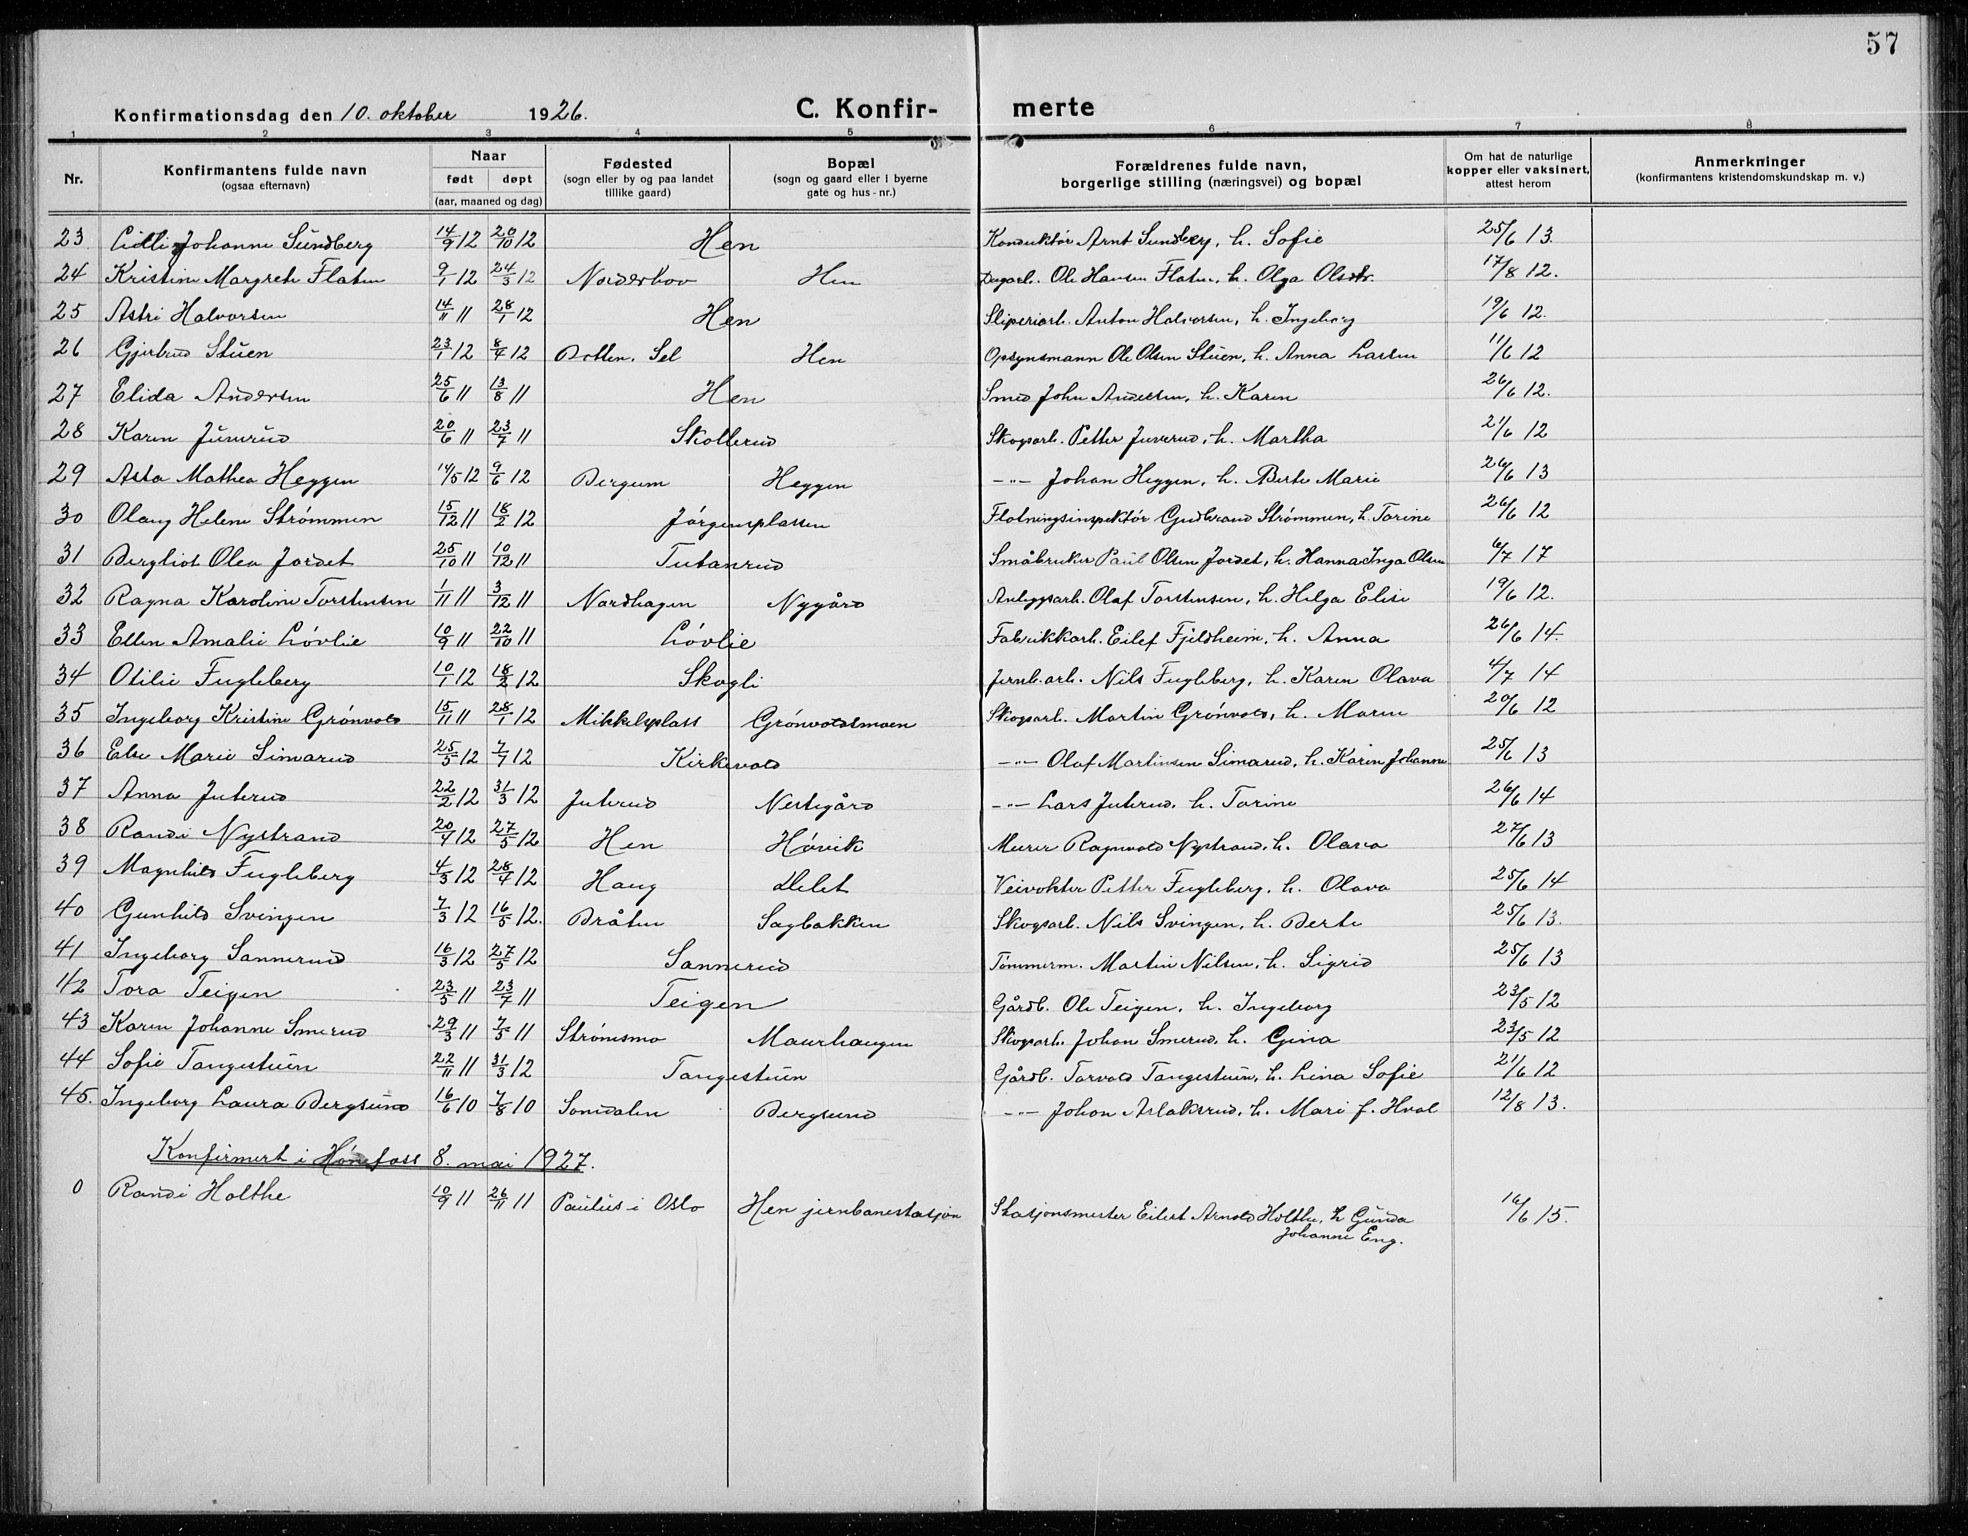 57
Konfirmationsdag den 10. oktober 1926. C. Konfir- merte
1 2 3 4 5 6 7 8
Nr. Konfirmantens fulde navn (ogsaa efternavn) Naar født døpt (aar, maaned og dag) Fødested (sogn eller by og paa landet tillike gaard) Bopæl (sogn og gaard eller i byerne gate og hus-nr.) Forældrenes fulde navn, borgerlige stilling (næringsvei) og bopæl Om hat de naturlige kopper eller vaksinert, attest herom Anmerkninger (konfirmantens kristendomskundskap m. v.)
23 Johanne Sundberg 14/9 12 20/10 12 Hen Konduktør Arnt Sundberg, h. Sofie 25/6 13.
24 Kristine Margrete Flaten 9/1 12 24/3 12 Norderhov Hen Dagarb. Ole Hansen Flaten, h. Olga Olsdtr. 17/8 12.
25 Astri Halvorsen 14/11 11 28/1 12 Hen Sliperiarb. Anton Halvorsen, h. Ingeborg 19/6 12.
26 Gjertrud Stuen 23/1 12 8/4 12 Botten, Sel Hen Opsynsmann Ole Olsen Stuen, h. Anna Larsen 11/6 12
27 Elida Andersen 25/6 11 13/8 11 Hen Smed John Andersen, h. Karen 26/6 12.
28 Karen Juverud 20/6 11 23/7 11 Skollerud Skogsarb. Petter Juverud, h. Martha 21/6 12
29 Asta Mathea Heggen 14/5 12 9/6 12 Bergum Heggen -"- Johan Heggen, h. Berte Marie 26/6 13
30 Olaug Helene Strømmen 15/12 11 18/2 12 Jørgensplassen Fløtningsinspektør Gudbrand Strømmen, h. Torine 26/6 12
31 Bergliot Olea Jordet 25/10 11 10/12 11 Tutanrud Småbruker Paul Olsen Jordet, h. Hanna Inga Olsen 6/7 17
32 Ragna Karoline Torstensen 1/11 11 3/12 11 Nordhagen Nygård Anleggsarb. Olaf Torstensen, h. Helga Elise 19/6 12.
33 Ellen Amalie Løvlie 10/9 11 22/10 11 Løvlie Fabrikkarb. Eilef Fjeldheim, h. Anna 26/6 14.
34 Otilie Fugleberg 10/1 12 18/2 12 Skogli Jernb.arb. Nils Fugleberg, h. Karen Olava 4/7 14
35 Ingeborg Kristine Grønvold 15/11 11 28/1 12 Mikkelsplass Grønvoldsmoen Skogsarb. Martin Grønvold, h. Maren 20/6 12
36 Else Marie Simarud 25/5 12 7/7 12 Kirkevold -"- Olaf Martinsen Simarud, h. Karen Johanne 25/6 13
37 Anna Juterud 22/2 12 31/3 12 Juterud Nestegård -"- Lars Juterud, h. Torine 26/6 14
38 Randi Nystrand 20/4 12 27/5 12 Hen Høvik Murer Ragnvald Nystrand, h. Olava 27/6 13
39 Magnhild Fugleberg 4/3 12 28/4 12 Haug Delet Veivokter Petter Fugleberg, h. Olava 25/6 14
40 Gunhild Svingen 7/3 12 16/5 12. Bråten Sagbakken Skogsarb. Nils Svingen, h. Berte 25/6 13.
41 Ingeborg Sannerud 16/3 12 27/5 12 Sannerud Tømmerm. Martin Nilsen, h. Sigrid 25/6 13
42 Tora Teigen 23/5 11 23/7 11 Teigen Gårdb. Ole Teigen, h. Ingeborg 23/5 12
43 Karen Johanne Smerud 29/3 11 7/5 11 Strømsmo Maurhaugen Skogsarb. Johan Smerud, h. Gina 23/5 12
44 Sofie Tangestuen 22/11 11 31/3 12 Tangestuen Gårdb. Torvald Tangestuen, h. Lina Sofie 21/6 12
45. Ingeborg Laura Bergsund 16/6 10 7/8 10 Somdalen Bergsund -"- Johan Aslaksrud, h. Mari f. Hval 12/8 13.
Konfirmert i Hønefoss 8. mai 1927.
0 Randi Holthe 10/9 11 26/11 11 Paulus i Oslo Hen jernbanestasjon Stasjonsmester Eilert Arnold Holthe, h. Gunda 16/6 15.
Johanne Eng.